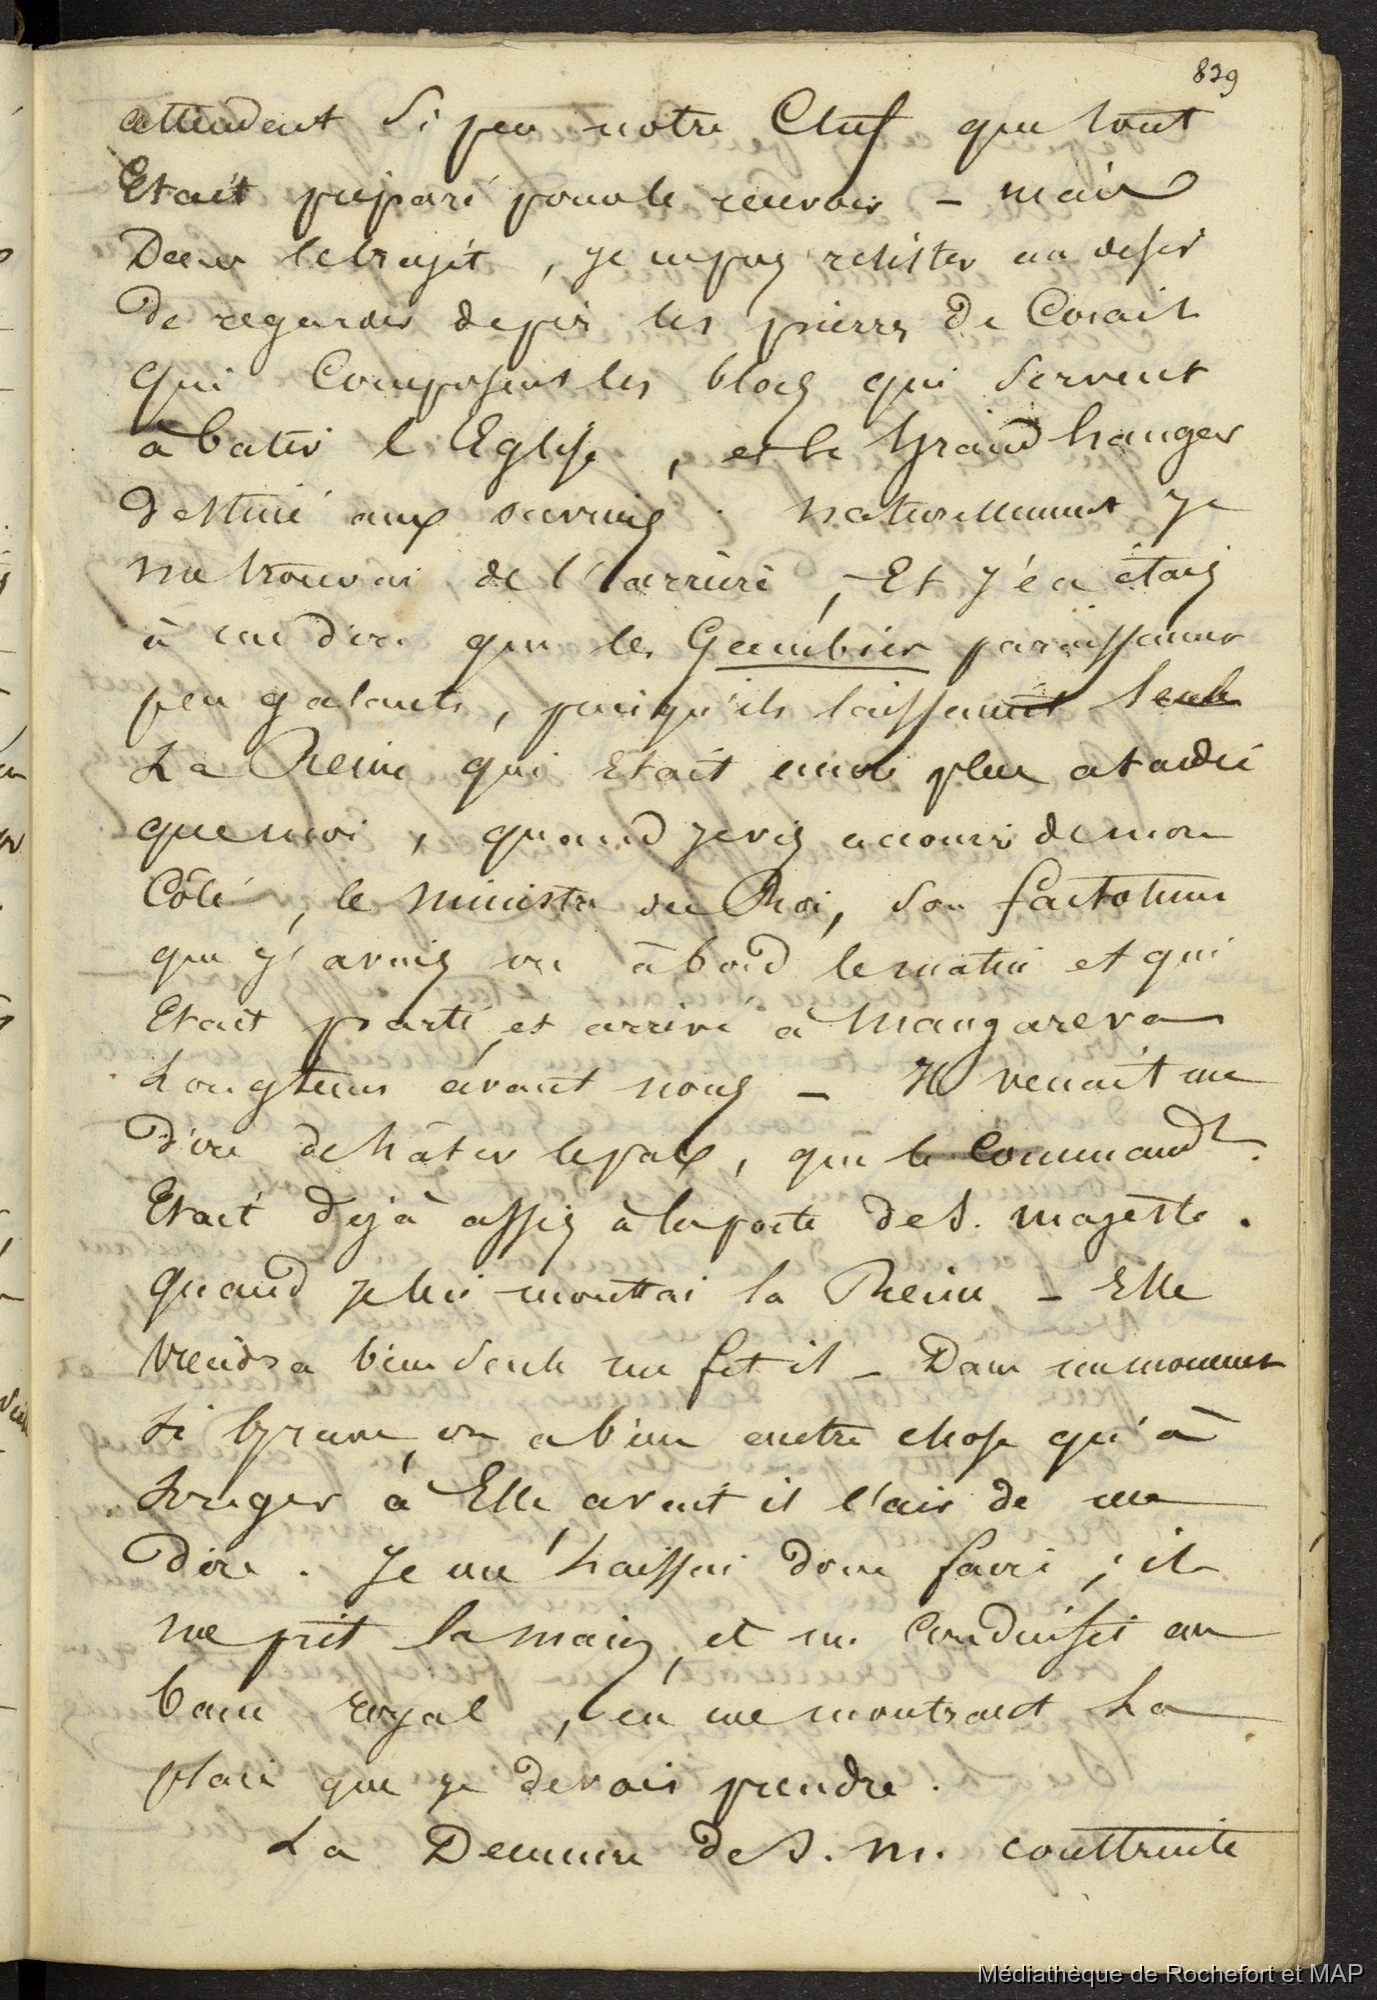 839
attendent si peu notre Chef que tout
Etait préparé pour le recevoir _ mais
Dans le trajet, je ne puy resister au desir
De regarder de près les pierres de Corail
qui composent les blocs qui servent
à batir l'Eglise, et le Grand hanger
destiné aux ouvriers. Naturellement je
me trouvai de l'arrière, Et j'en étais
à me dire que les Gambier paraissaient
peu galants, puisqu'ils laissaient seule
La Reine qui Etait encore plus atardée
que moi, quand je vis accourir de mon
Côté, le ministre du Roi, son factotum
que j'avais vu à bord le matin et qui
Etait parti et arrivé à Mangareva
Longtems avant nous _ Il venait me
Dire de hâter le pas, que le Command.t
Etait déjà assis à la porte de S. majesté.
Quand je lui montrai la Reine _ Elle
Viendra bien seule me fit il _ Dans un moment
si grave, on a bien autre chose qu'à
songer à Elle avait il l'air de me
dire. Je me laissai donc faire; il
me prit la main, et me conduisit au
banc royal, en me montrant La
place que je devais prendre.
La Demeure de S. M. construite
Médiathèque de Rochefort et MAP